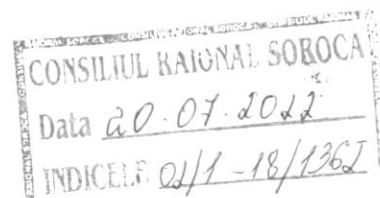 CONSILIUL RAIONAL SOROCA
Data 20.07.2022
INDICELE 02/1-18/1362